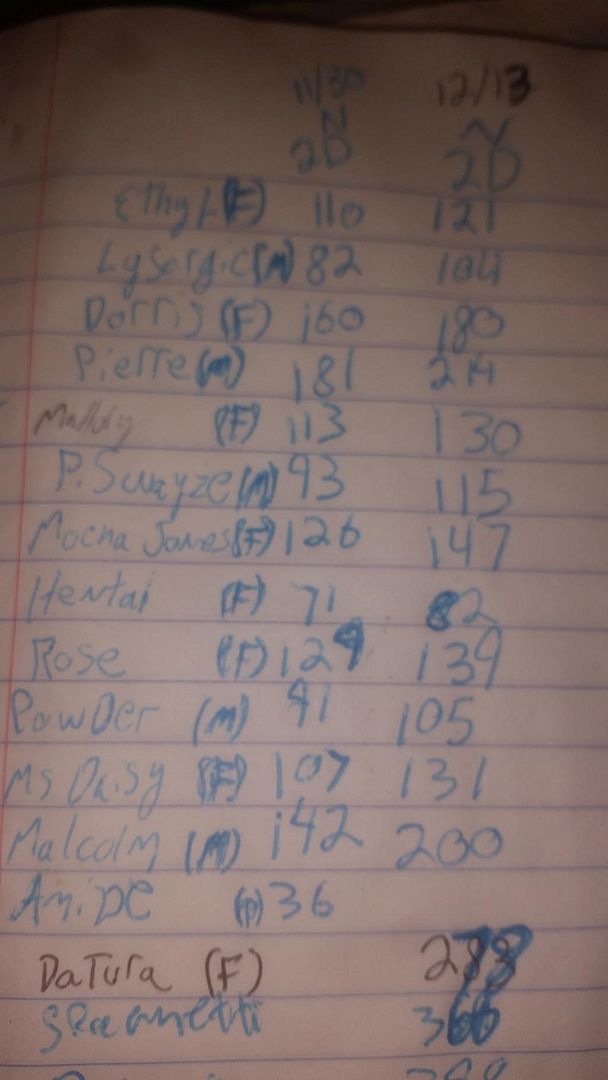 11/30 12/13
N N
2D 2D
Ethyl (F) 110 121
Lysergic (M) 82 104
Dorris (F) 160 180
Pierre (M) 181 214
Mallory (F) 113 130
P. Swayze (M) 93 115
Mocha Jones (F) 126 147
Hentai (F) 71 82
Rose (F) 129 139
PowDer (M) 91 105
Ms Daisy (F) 107 131
Malcolm (M) 142 200
AmiDe 36
DaTura (F)
Spaghetti